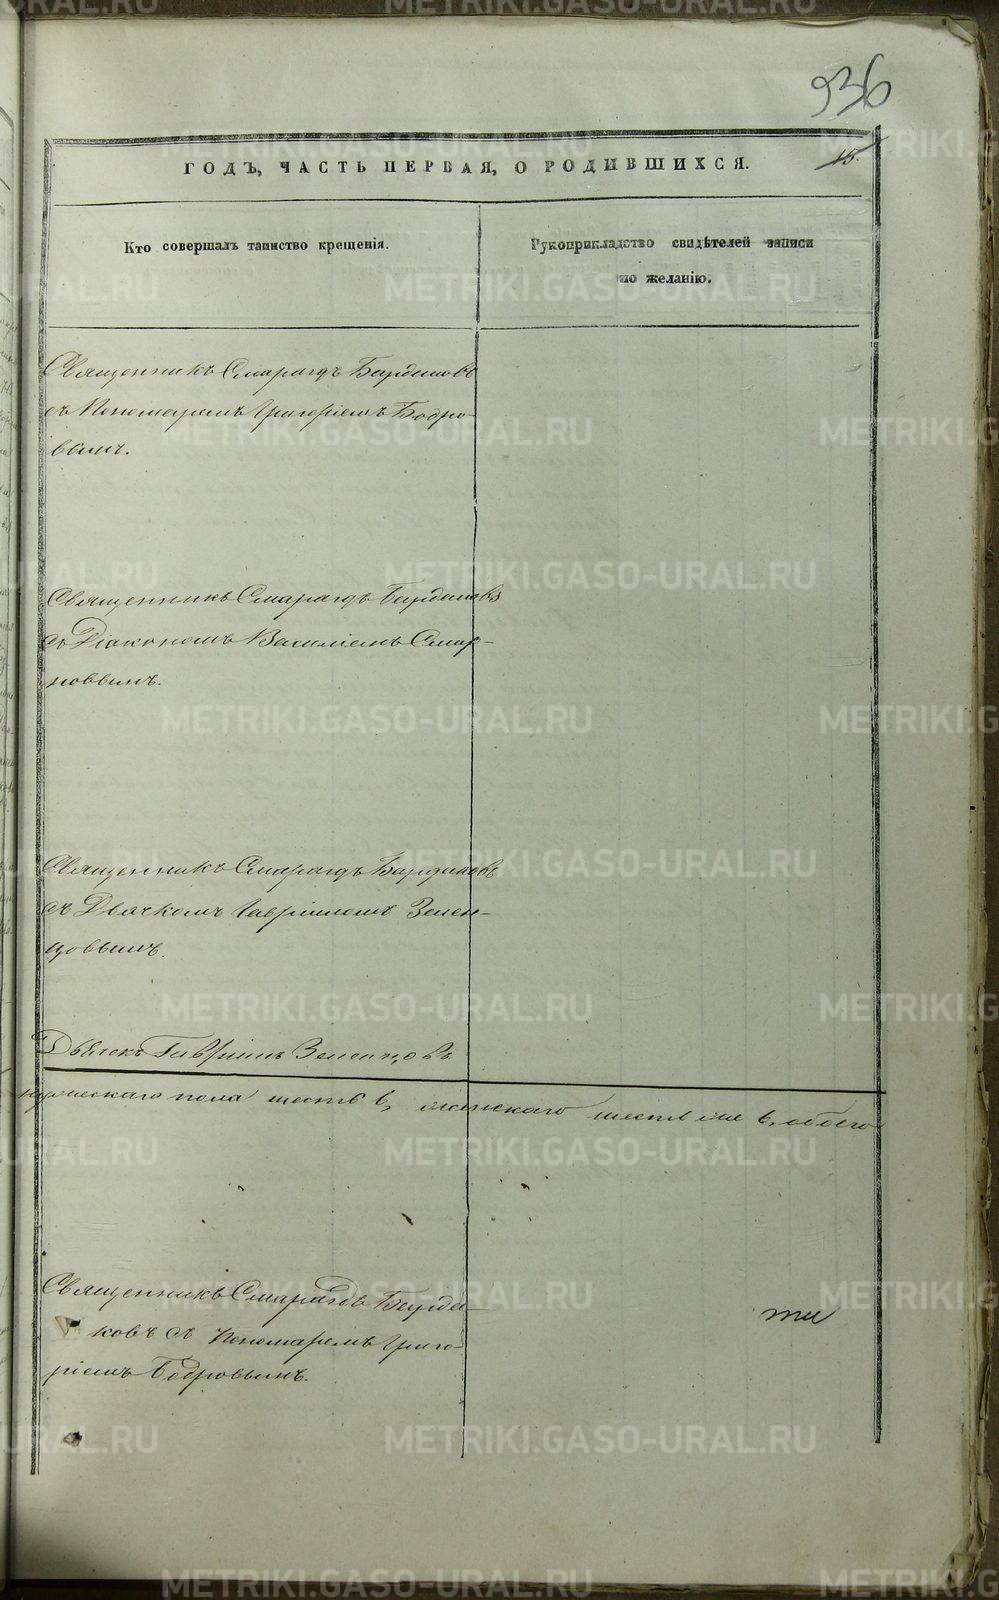 936
ГОДЪ, ЧАСТЬ ПЕРВАЯ, О РОДИВШИХСЯ.
15.
Кто совершалъ таинство крещенія.
Рукоприкладство свидѣтелей записи
по желанію.
Священникъ Смарагдъ Бурдуковъ
съ Пономаремъ Григоріемъ Бодро-
вымъ.
Священникъ Смарагдъ
со Діакономъ Василіемъ Смир-
новымъ.
Священникъ Смарагдъ
съ Дьячкомъ Гавріиломъ Зелен-
цовымъ.
Дьячекъ Гавріилъ Зеленцовъ
мужескаго пола шесть, женскаго шесть, обоего
Священникъ Смарагдъ
ковъ съ Пономаремъ Григо-
ріемъ Бодровымъ.
METRIKI.GASO-URAL.RU